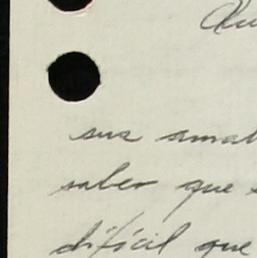 sus amab
saber que
difícil que